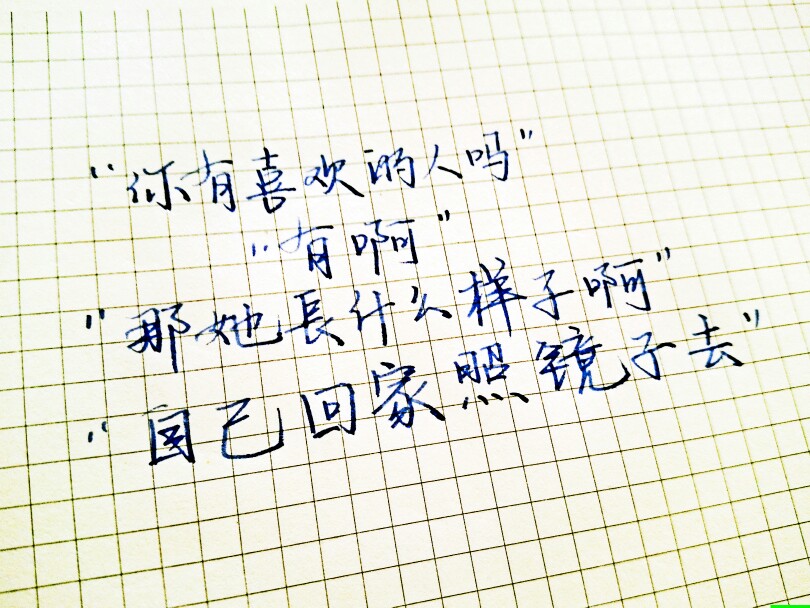 “你有喜欢的人吗”
“有啊”
“那她長什么样子啊”
“自己回家照镜子去”